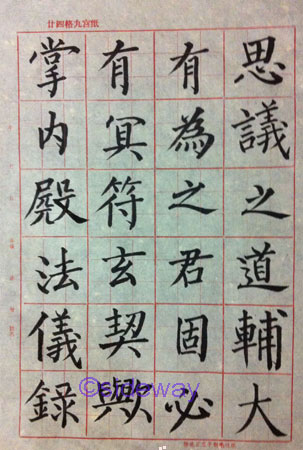 廿四格九宮紙
思議之道輔大
有為之君固必
有冥符玄契歟
掌內殿法儀錄